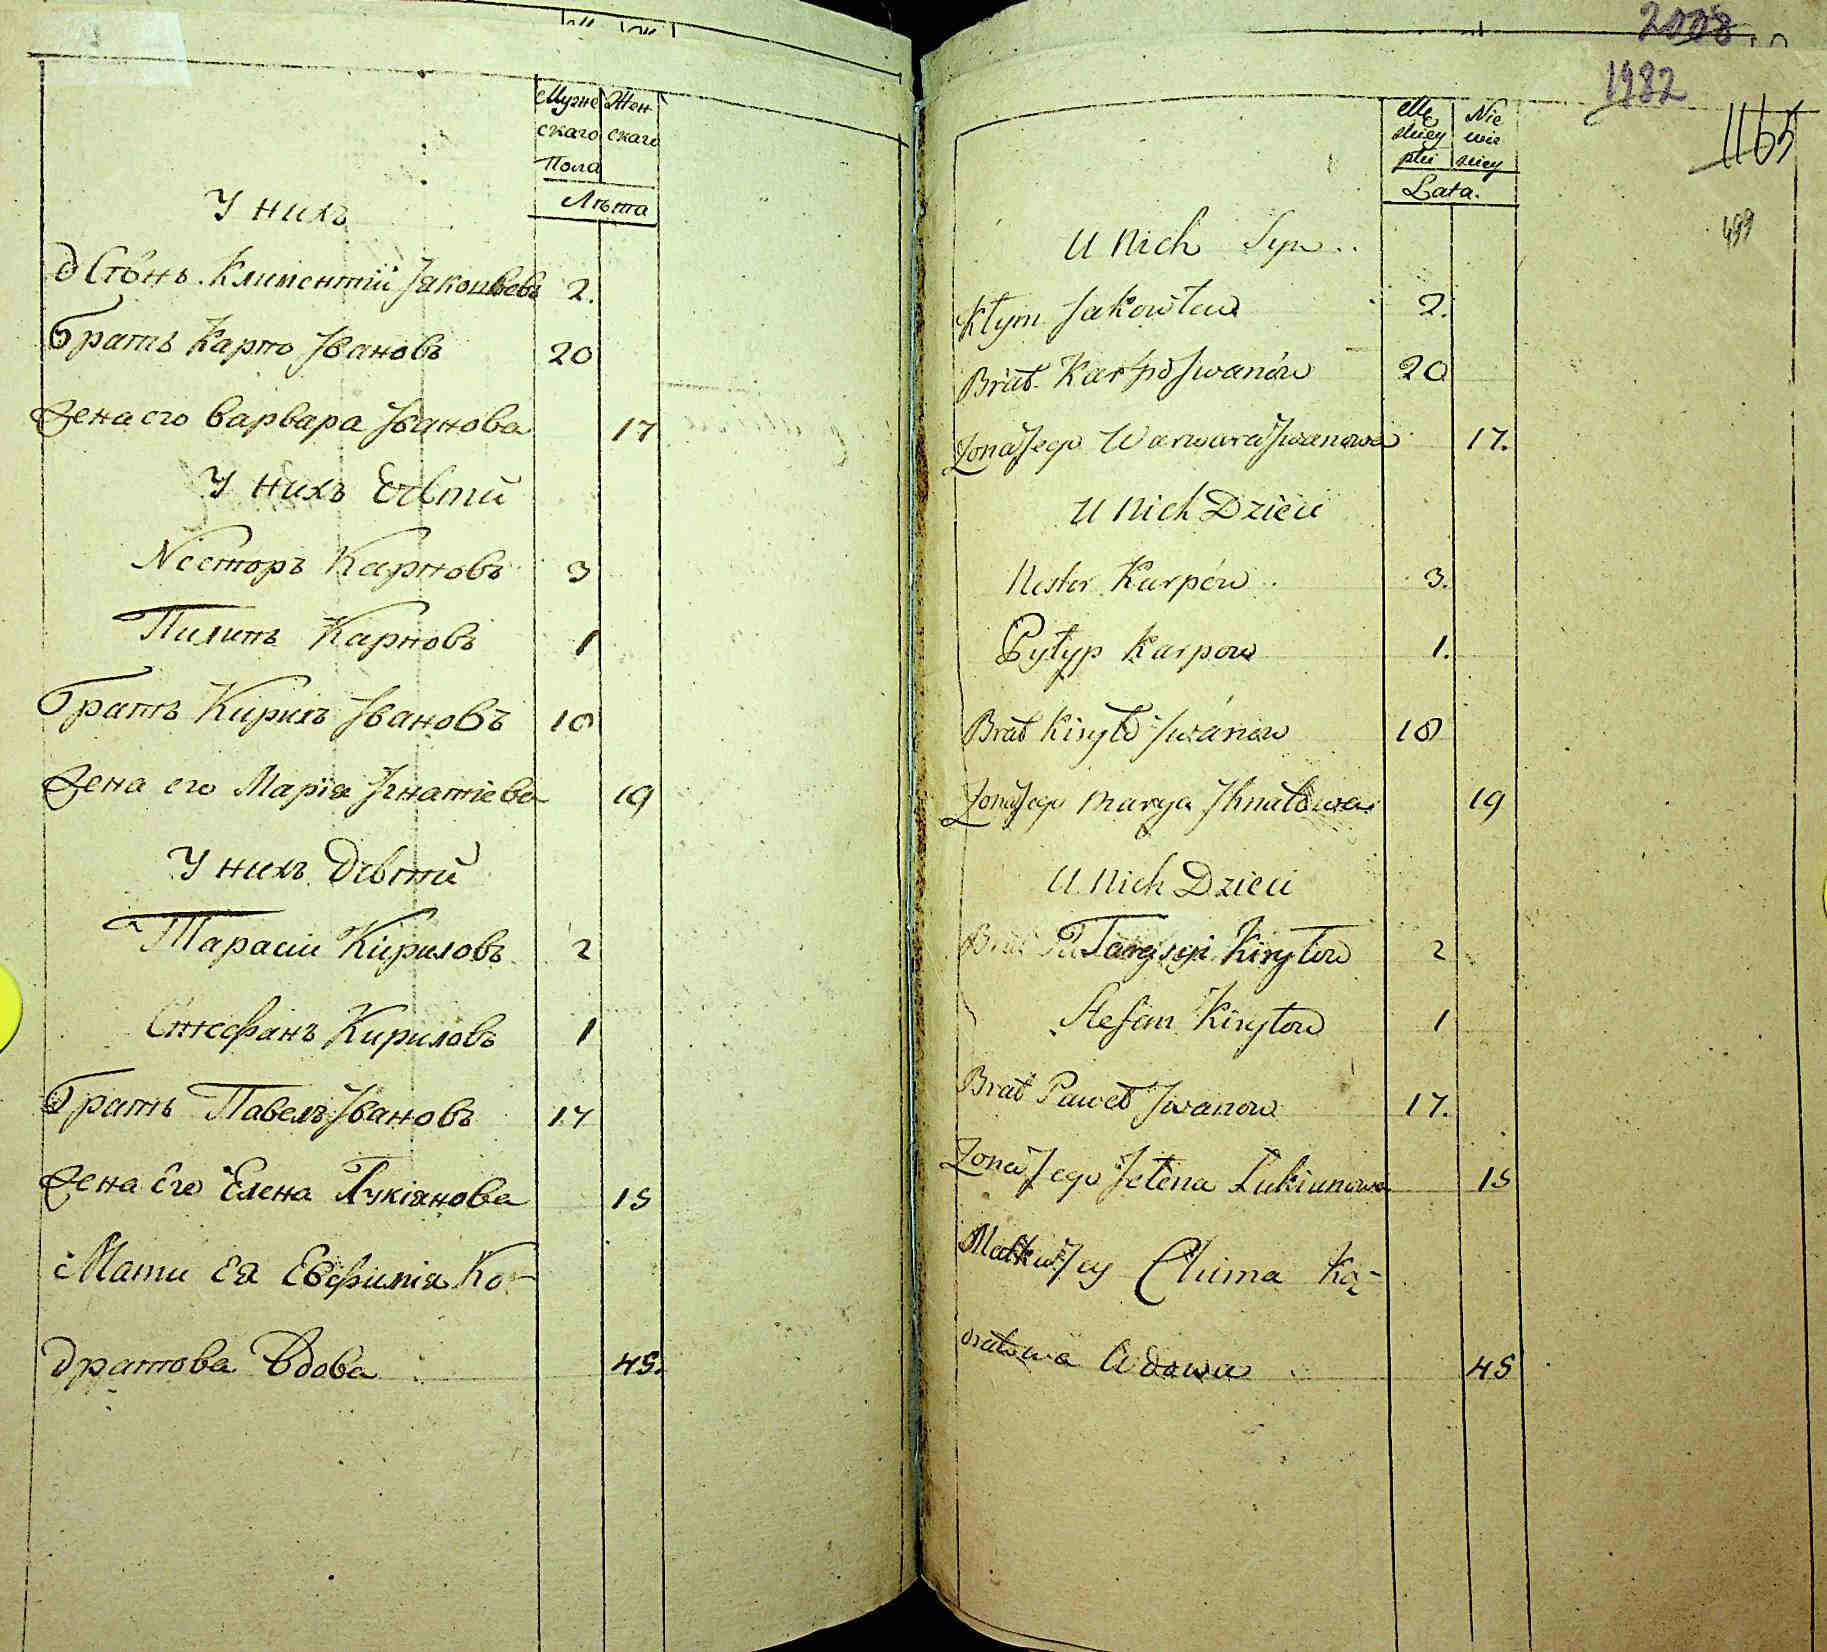 Мужескаго Женскаго
Пола
Лѣта
У нихъ
Сынъ Климентій Іаковлевъ 2.
Братъ Карпо Івановъ 20
Жена его Варвара Іванова 17
У нихъ Дѣти
Несторъ Карповъ 3
Пилипъ Карповъ 1
Братъ Кирилъ Івановъ 18
Жена его Марія Ігнатіева 19
У нихъ Дѣти
Тарасій Кириловъ 2
Стефанъ Кириловъ 1
Братъ Павелъ Івановъ 17
Жена Его Елена Лукіянова 15
Мати Ея Евфимія Ко-
дратова Вдова 45.
2008
1982
1165
499
Męskiey płci Niewieskiey
Lata.
U Nich Syn
Kłym Jakowlew 2.
Brat Karpo Jwanów 20
Żona Jego Warwara Jwanowa 17.
U Nich Dzieci
Nestor Karpów 3.
Pyłyp Karpow 1.
Brat Kiryło Jwanow 18
Żona Jego Marya Jhnatowa 19
U Nich Dzieci
Tarysyi Kiryłow 2
Stefan Kiryłow 1
Brat Paweł Jwanow 17.
Żona Jego Jełena Łukianowa 15
Matka Jey Chima Ko-
dratowa Wdowa 45